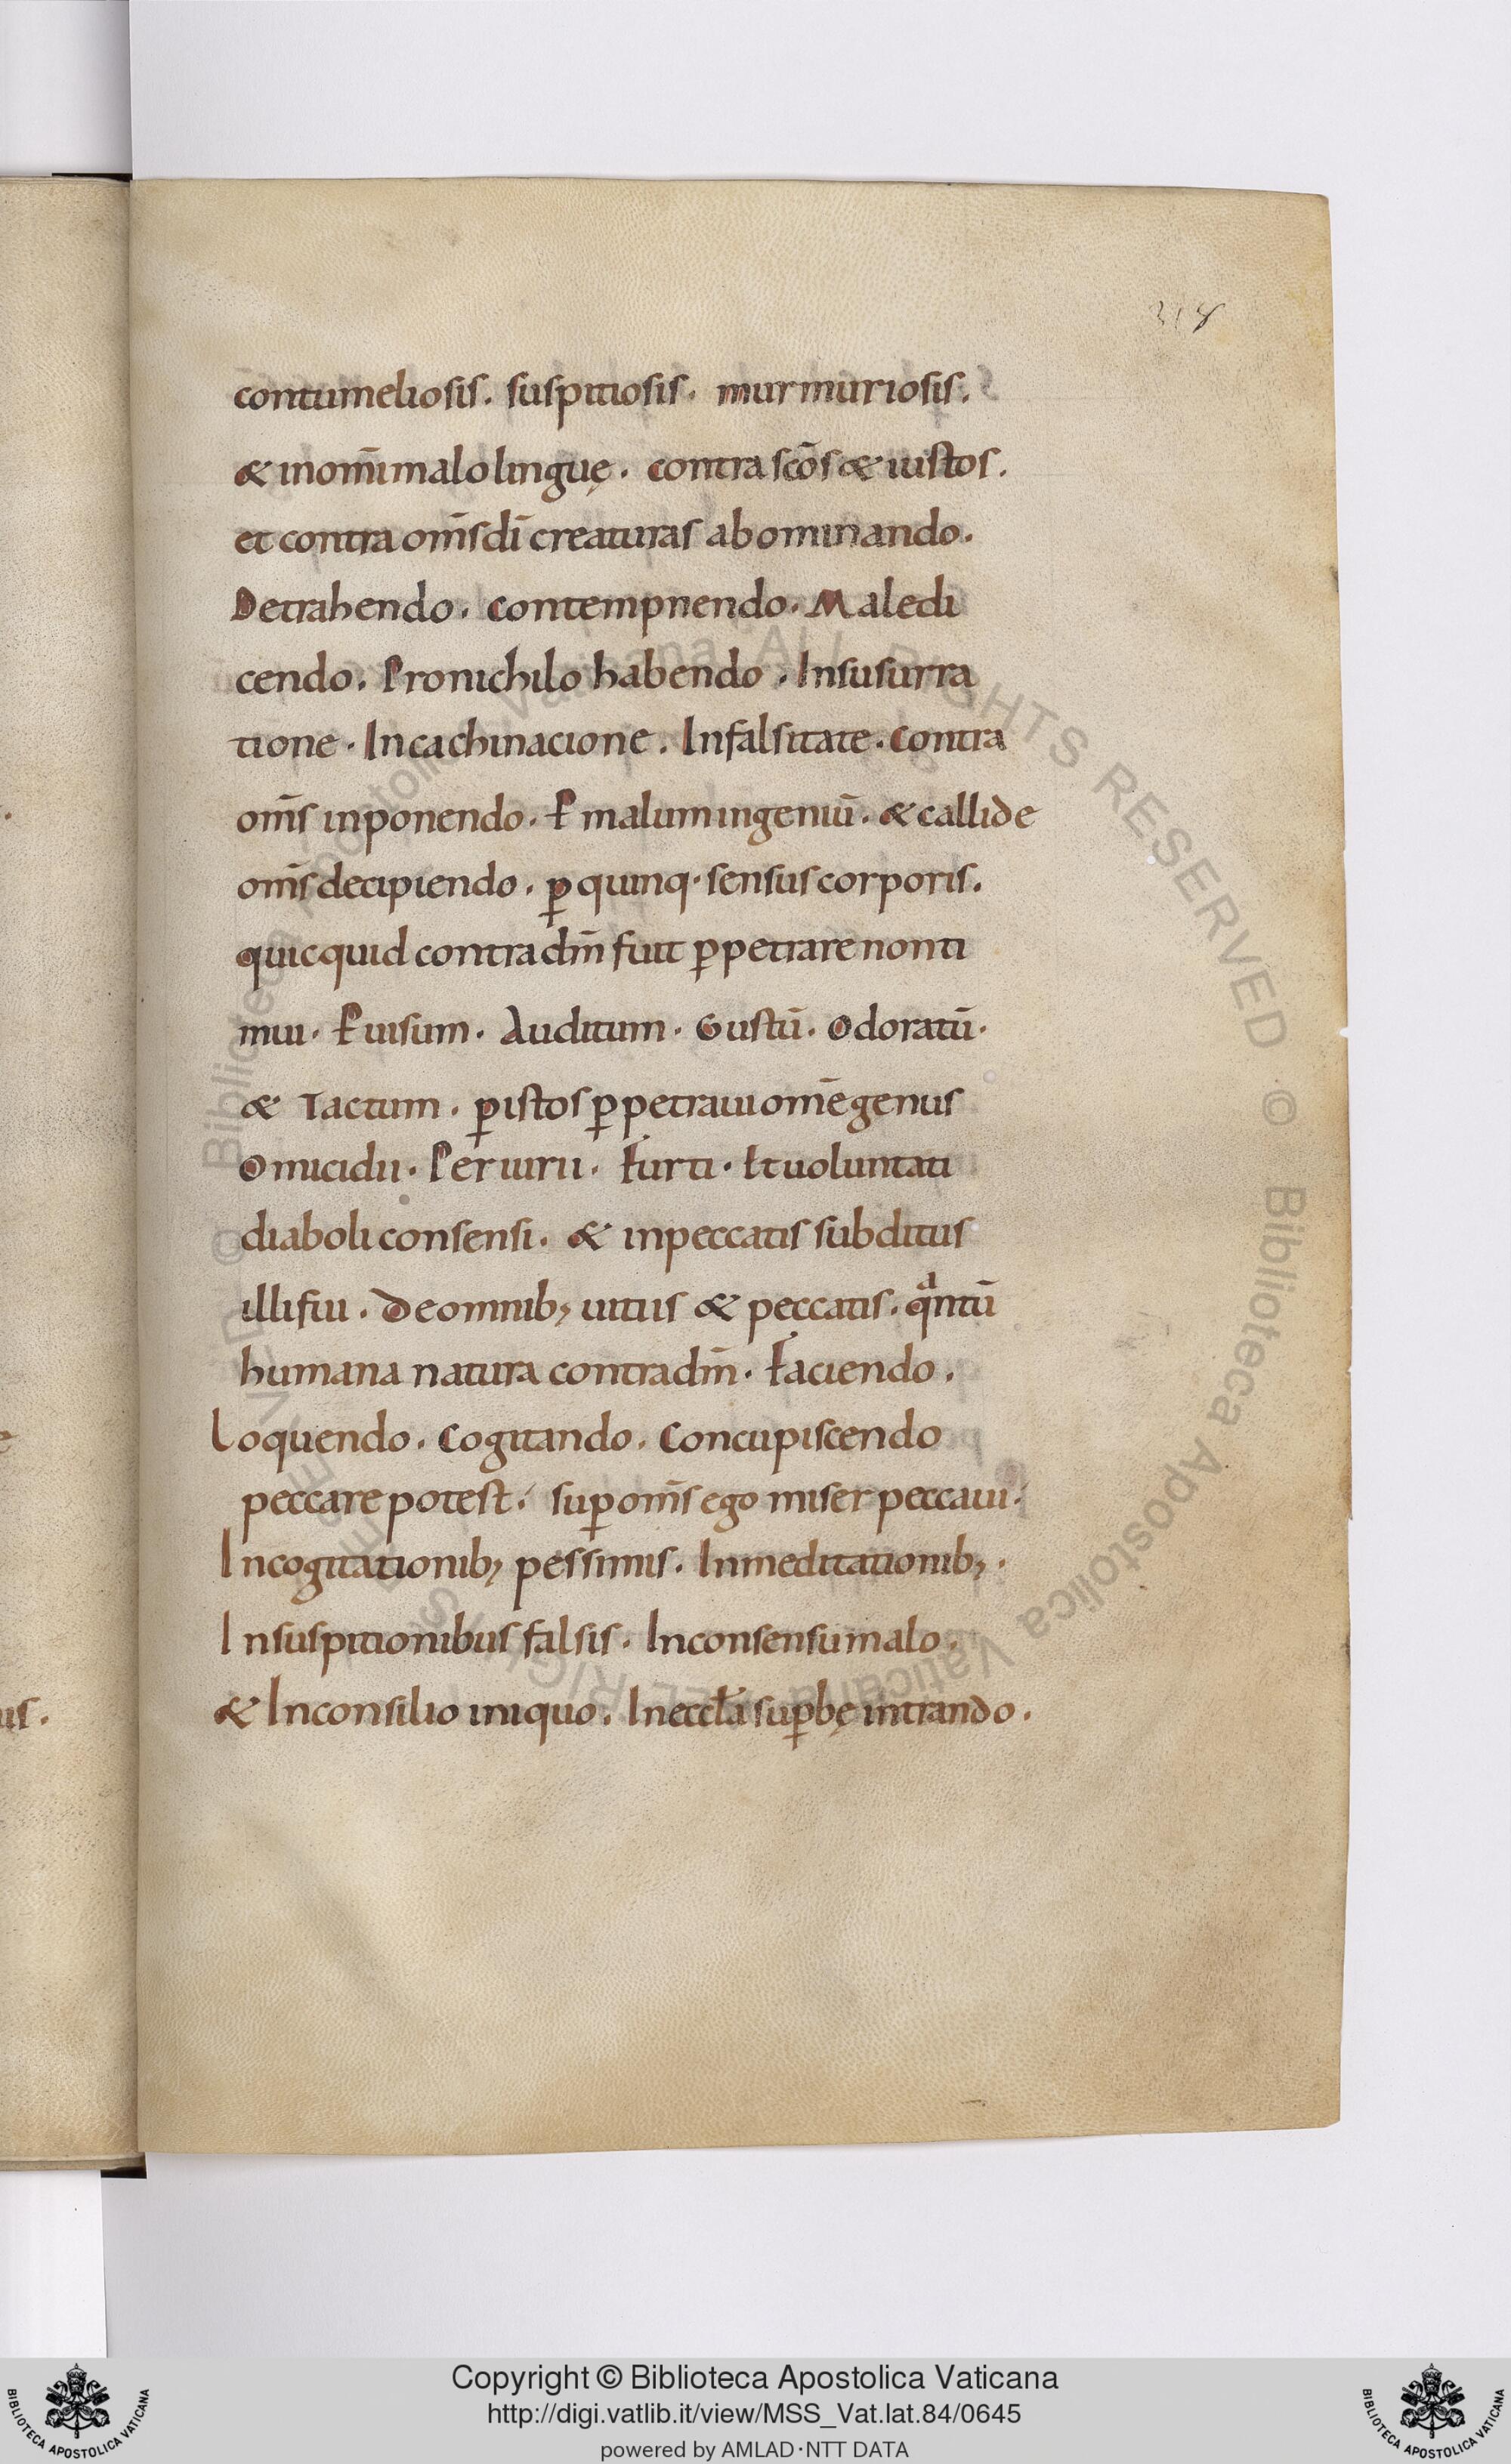 318
contumeliosis. suspitiosis. murmuriosis.
& inom̄i malo linguę. contra sc̄os & iustos.
et contra om̄s dī creaturas abominando.
Detrahendo. contempnendo. Maledi
cendo. Pro nichilo habendo. In susurra
tione. In cachinacione. In falsitate. contra
om̄s inponendo. P̱ malum ingeniū. & callide
om̄s decipiendo. ꝑ quinq· sensus corporis.
quicquid contra dm̄ fuit ꝑpetrare non ti
mui. P̱ uisum. Auditum. Gustū. Odoratū.
& Tactum. ꝑ istos ꝑpetraui om̄e genus
Omicidii. Periurii. Furti. Et uoluntati
diaboli consensi. & in peccatis subditus
illi fui. De omnib; uitiis & peccatis. qᵃntū
humana natura contra dm̄. Faciendo.
Loquendo. Cogitando. Concupiscendo
peccare potest. suꝑ om̄s ego miser peccaui.
In cogitationib; pessimis. In meditationib;.
In suspitionibus falsis. In consensu malo.
& In consilio iniquo. In eccłia suꝑbę intrando.
us.
© Biblioteca Apostolica Vaticana ALL RIGHTS RESERVED
© Biblioteca Apostolica Vaticana ALL RIGHTS RESERVED
Copyright © Biblioteca Apostolica Vaticana
http://digi.vatlib.it/view/MSS_Vat.lat.84/0645
powered by AMLAD·NTT DATA
BIBLIOTECA APOSTOLICA VATICANA
BIBLIOTECA APOSTOLICA VATICANA